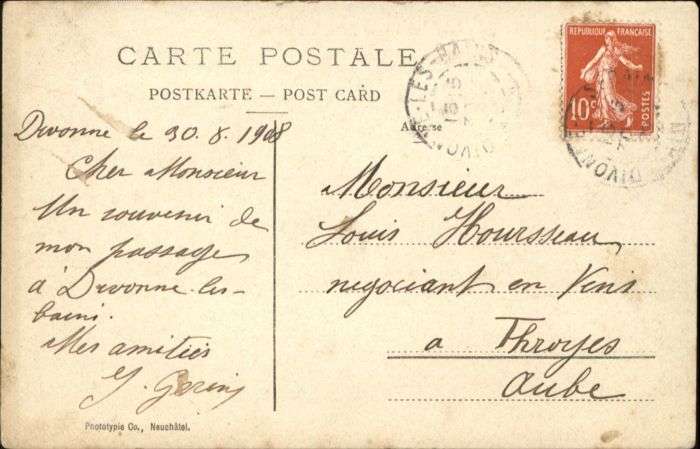 CARTE POSTALE
POSTKARTE — POST CARD
Adresse
REPUBLIQUE FRANÇAISE
10c
POSTES
DIVONNE-LES-BAINS
DIVONNE
Divonne le 30.8.1908
Cher Monsieur
Un souvenir de
mon passage
à Divonne les-
bains.
Mes amitiés
Monsieur
Louis Hoursseau
negociant en Vins
a Throyes
Aube
Phototypie Co., Neuchâtel.